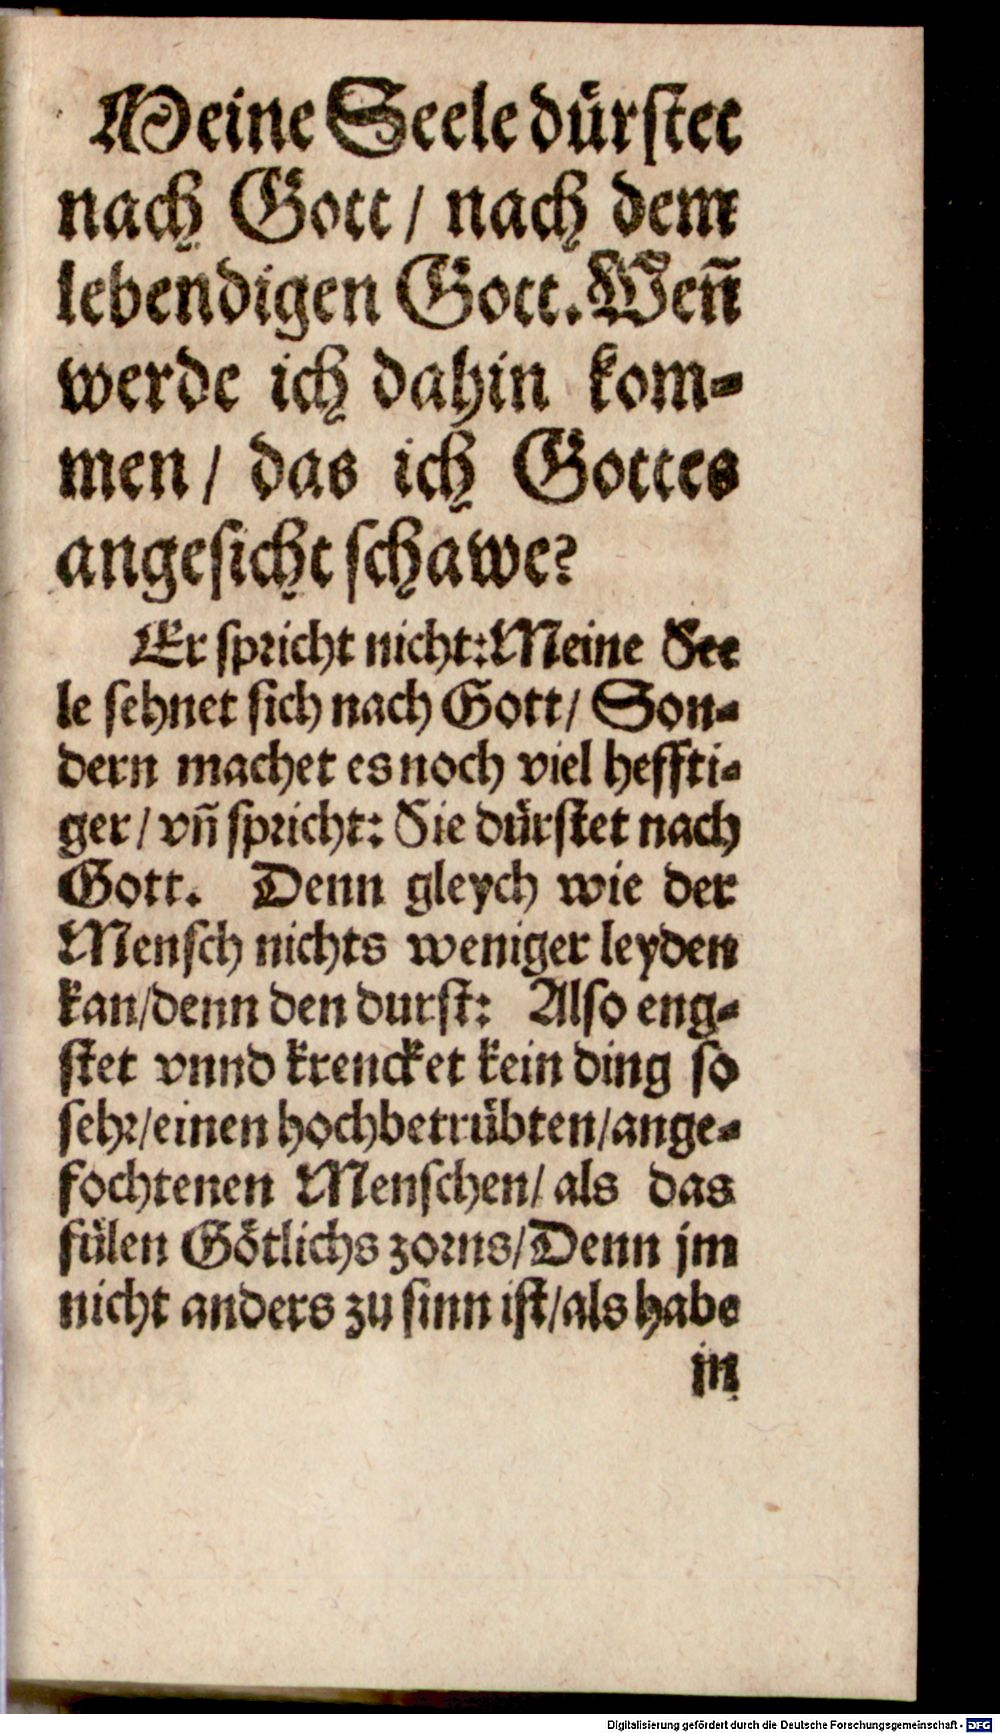 Meine Seele dürstet
nach Gott / nach dem
lebendigen Gott. Weñ
werde ich dahin kom-
men / das ich Gottes
angesicht schawe?
Er spricht nicht: Meine See
le sehnet sich nach Gott / Son-
dern machet es noch viel heffti-
ger / vñ spricht: Sie dürstet nach
Gott. Denn gleych wie der
Mensch nichts weniger leyden
kan / denn den durst: Also eng-
stet vnnd krencket kein ding so
sehr / einen hochbetrübten / ange-
fochtenen Menschen / als das
fülen Götlichs zorns / Denn jm
nicht anders zu sinn ist / als habe
in
Digitalisierung gefördert durch die Deutsche Forschungsgemeinschaft - DFG